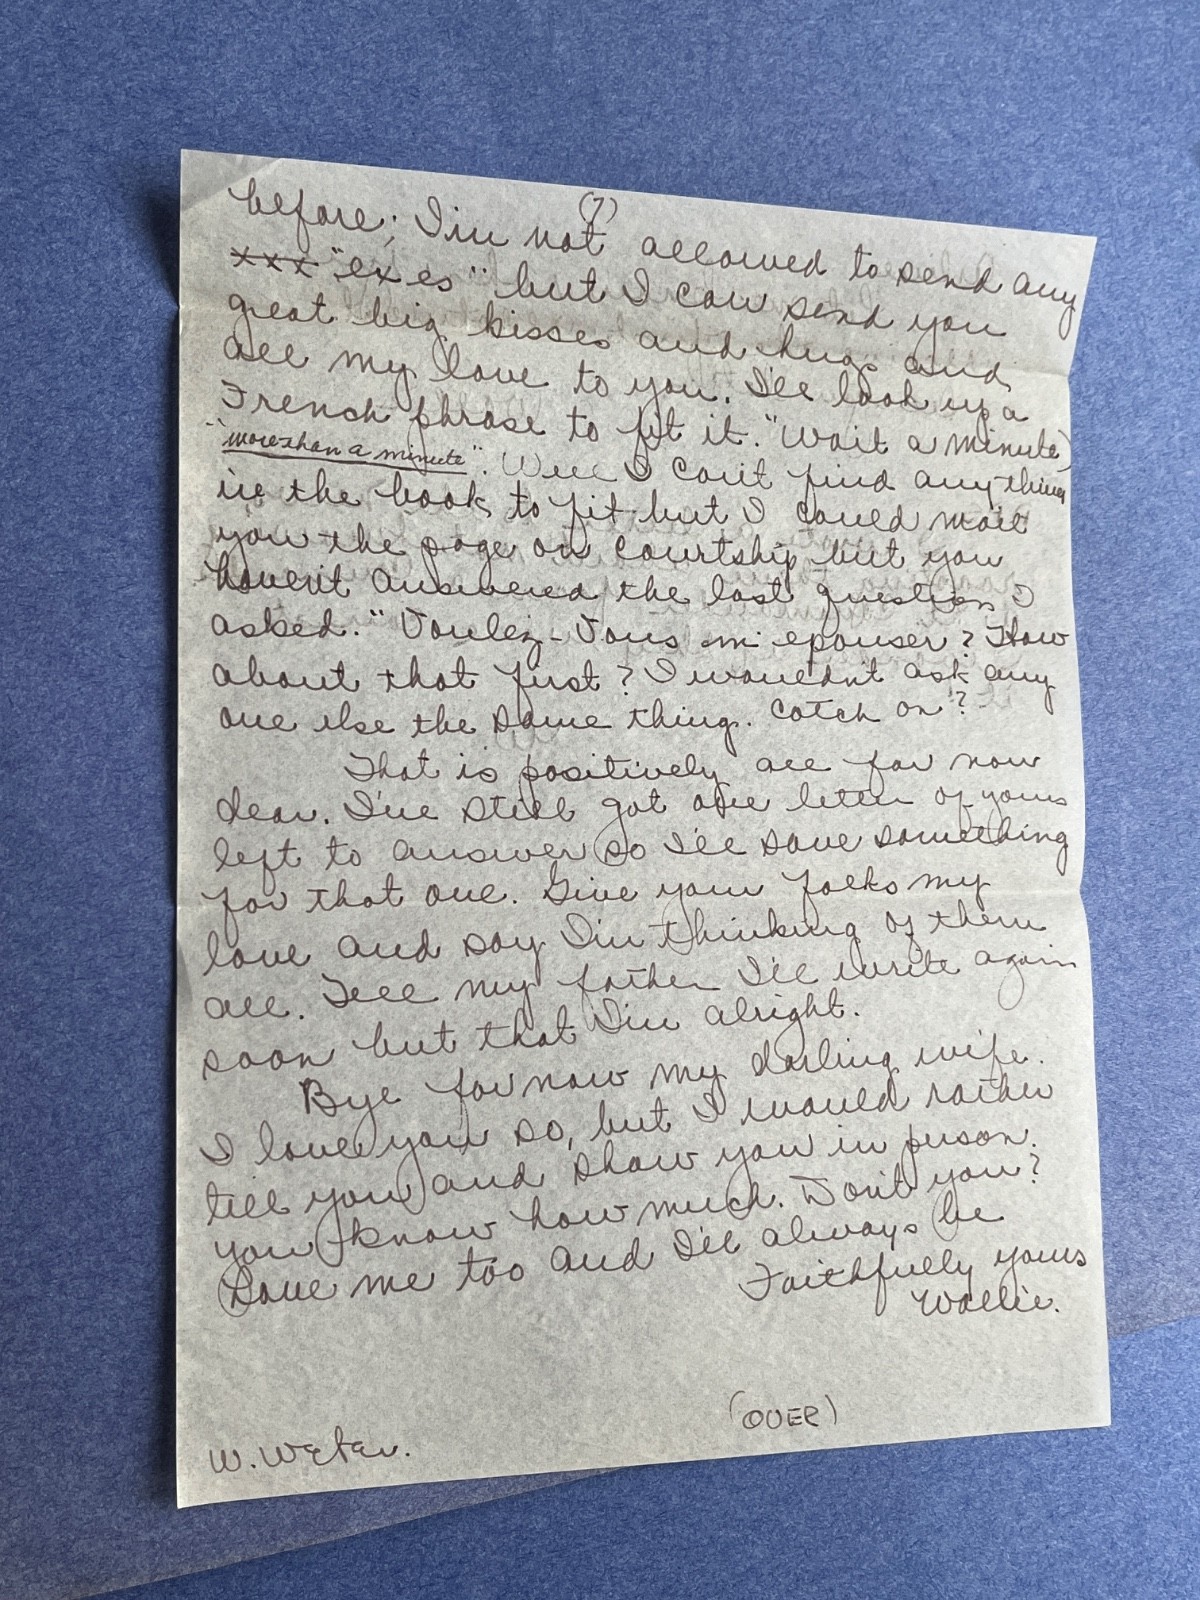 (7)
before; I'm not allowed to send any
xxx "exes" but I can send you
great big kisses and hugs and
all my love to you. I'll look up a
French phrase to fit it. "Wait a minute)
"more than a minute". Well I can't find anything
in the book to fit but I could mail
you the page on courtship but you
haven't answered the last question I
asked. "Voulez-Vous m epouser? How
about that first? I wouldn't ask any
one else the same thing. Catch on?
That is positively all for now
dear. I've still got one letter of yours
left to answer so I'll save something
for that one. Give your folks my
love and say I'm thinking of them
all. Tell my father I'll write again
soon but that I'm alright.
Bye for now my darling wife.
I love you so, but I would rather
tell you and show you in person.
you know how much. Don't you?
Love me too and I'll always be
Faithfully yours
Wallie.
(OVER)
W. Weter.